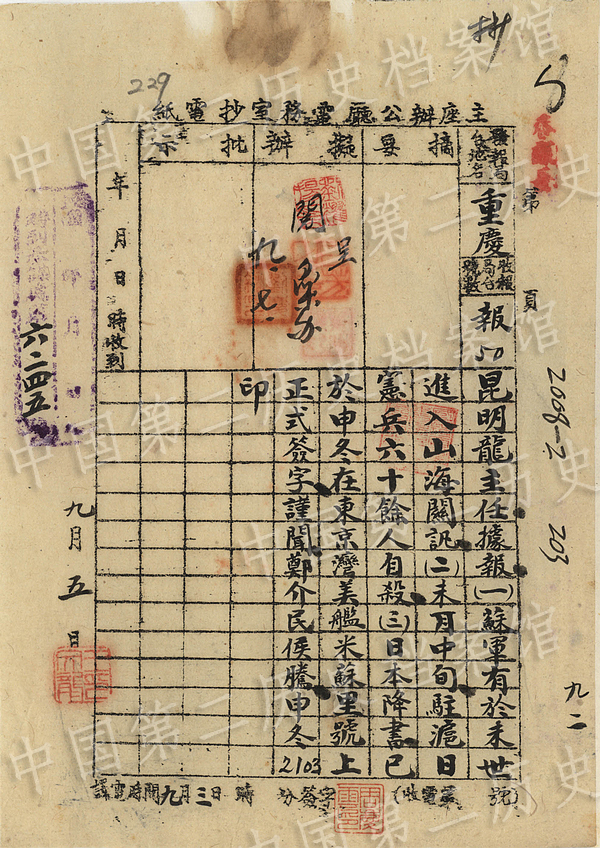 抄
229
主座辦公廳電務室抄電紙
發報局台地名
重慶
收報局台號數
報
50
摘要
擬辦
批示
呈
閱
九、七、
年 月 日 時收到
第 頁
2008-2 203
九二
昆明龍主任據報(一)蘇軍有於未世
進入山海關訊(二)未月中旬駐滬日
憲兵六十餘人自殺(三)日本降書已
於申冬在東京灣美艦米蘇里號上
正式簽字謹聞鄭介民侯騰申冬2103
印
六二四五
九月五日
譯電時間九月三日 時 分簽字 (收電第 號)
中国第二历史档案馆